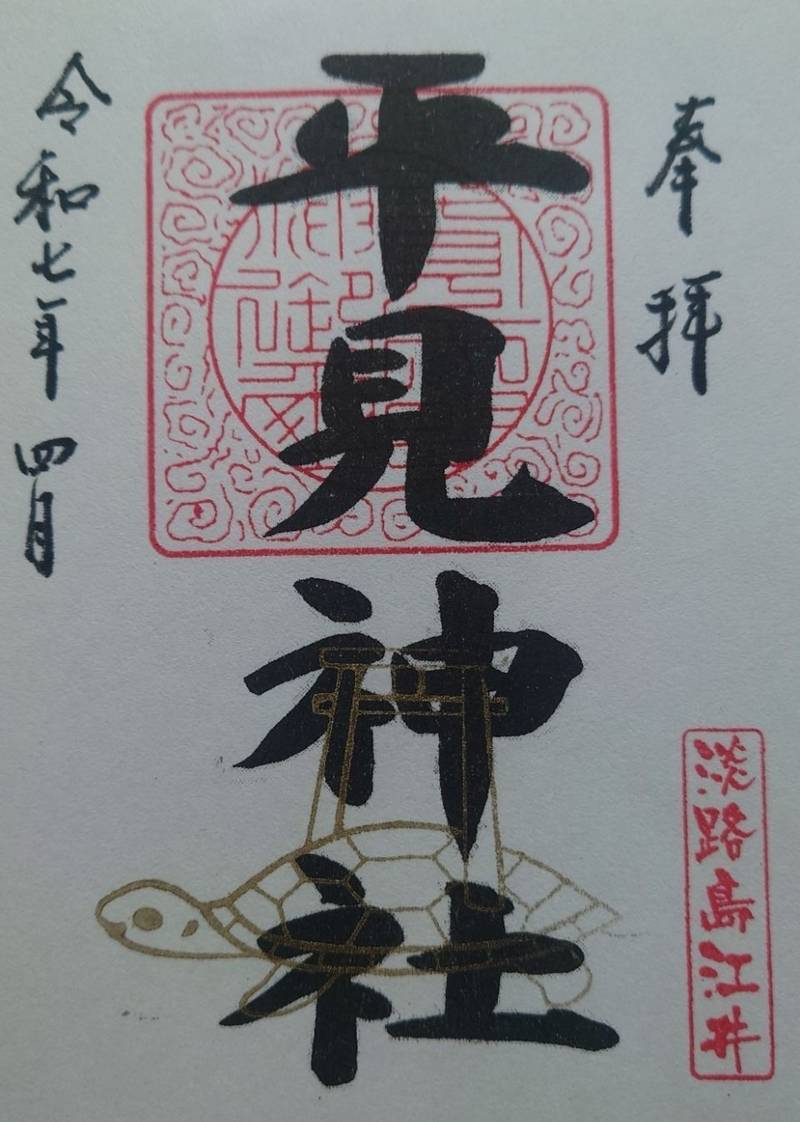 奉拝
平見神社
淡路島江井
令和七年四月